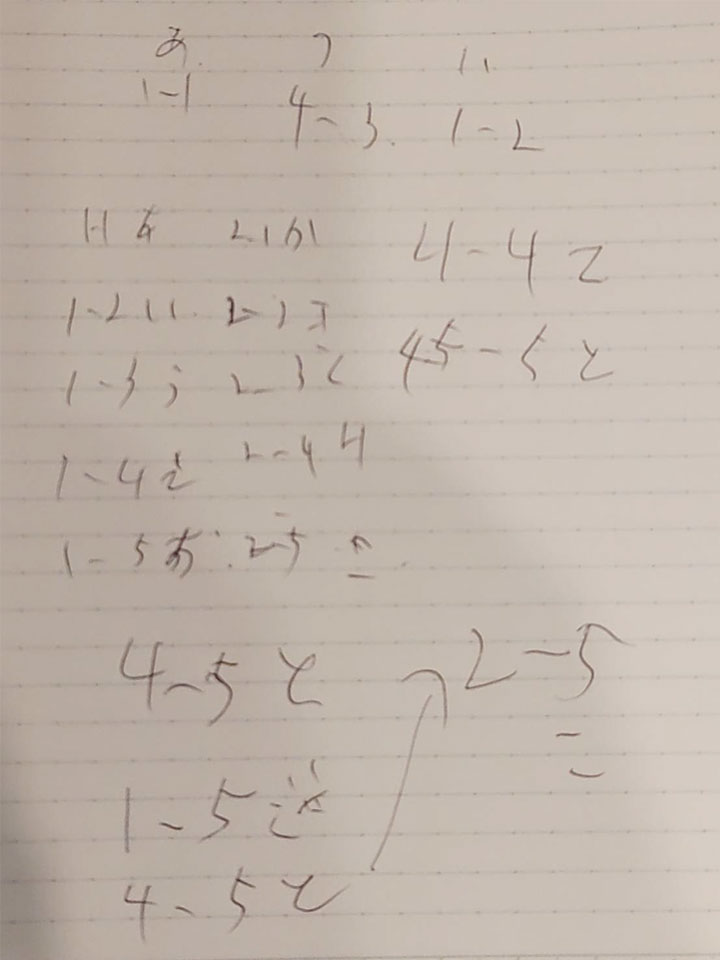 あ つ い
1-1 4-3. 1-2
1-1 あ 2-1 か
1-2 い 2-2
1-3 う 2-3 く
1-4 え 2-4 け
1-5 お 2-5 こ
4-4 て
45-5 と
4-5 と
2-5
こ
1-5
4-5 と